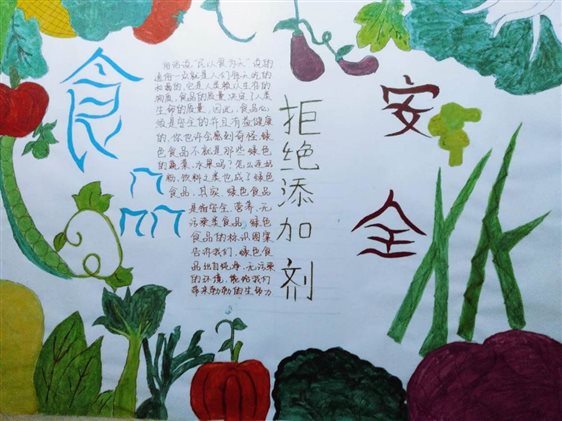 食品
安全
拒绝添加剂
俗话说“民以食为天”说的
通俗一点就是人们每天吃的
东西的,它是人类赖以生存的
物质,食品的质量决定了人类
生命的质量,因此,食品必
须是安全的并且有益健康
的,你也许会感到奇怪,绿
色食品不就是那些绿色
的蔬菜、水果吗?怎么连奶
粉、饮料之类也成了绿色
食品,其实,绿色食品
是指安全、营养、无
污染类食品,绿色
食品的标识图案
告诉我们,绿色食
品出自纯净、无污染
的环境,能给我们
带来勃勃的生命力